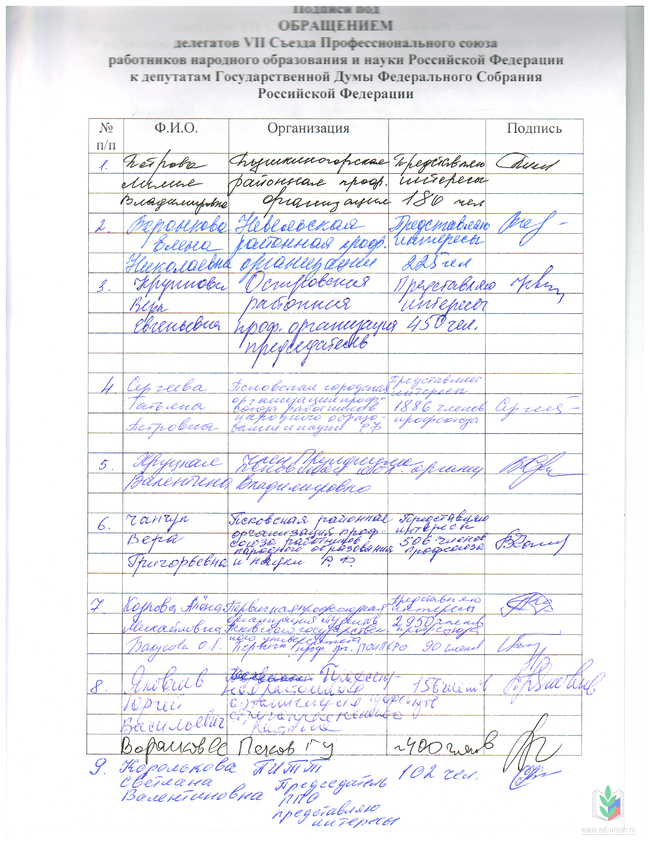 Подписи под
ОБРАЩЕНИЕМ
делегатов VII Съезда Профессионального союза
работников народного образования и науки Российской Федерации
к депутатам Государственной Думы Федерального Собрания
Российской Федерации
№ п/п Ф.И.О. Организация Подпись
1. Петрова Пушкиногорская Представляю
Лилия районная проф. интересы
Владимировна организация 186 чел
2. Воронкова Невельская Представляю
Елена районная проф. интересы
Николаевна организация 225 чел
3. Островская Представляю
Вера районная интересы
Евгеньевна проф. организация 450 чел.
председатель
4. Сергеева Псковская городская Представляет
Татьяна организация проф- интересы
Петровна союза работников 1886 членов
народного образо- профсоюза
вания и науки РФ
5. Член Президиума
Валентина Владимировна
6. Чанчук Псковская районная Представляю
Вера организация проф- интересы
Григорьевна союза работников 506 членов
народного образования профсоюза
и науки Р.Ф.
7 Первичная профсоюзная Представляю
Михайловна организация интересы
Псковского государствен- 2950 членов
ного университета профсоюза
90 членов
8. Яковлев 156 членов
Юрий организация
Васильевич района
Псков ГУ ~400 членов
9. Королькова ПИТТ 102 чел.
Светлана Председатель
Валентиновна ППО
представляю
интересы
www.ed-union.ru